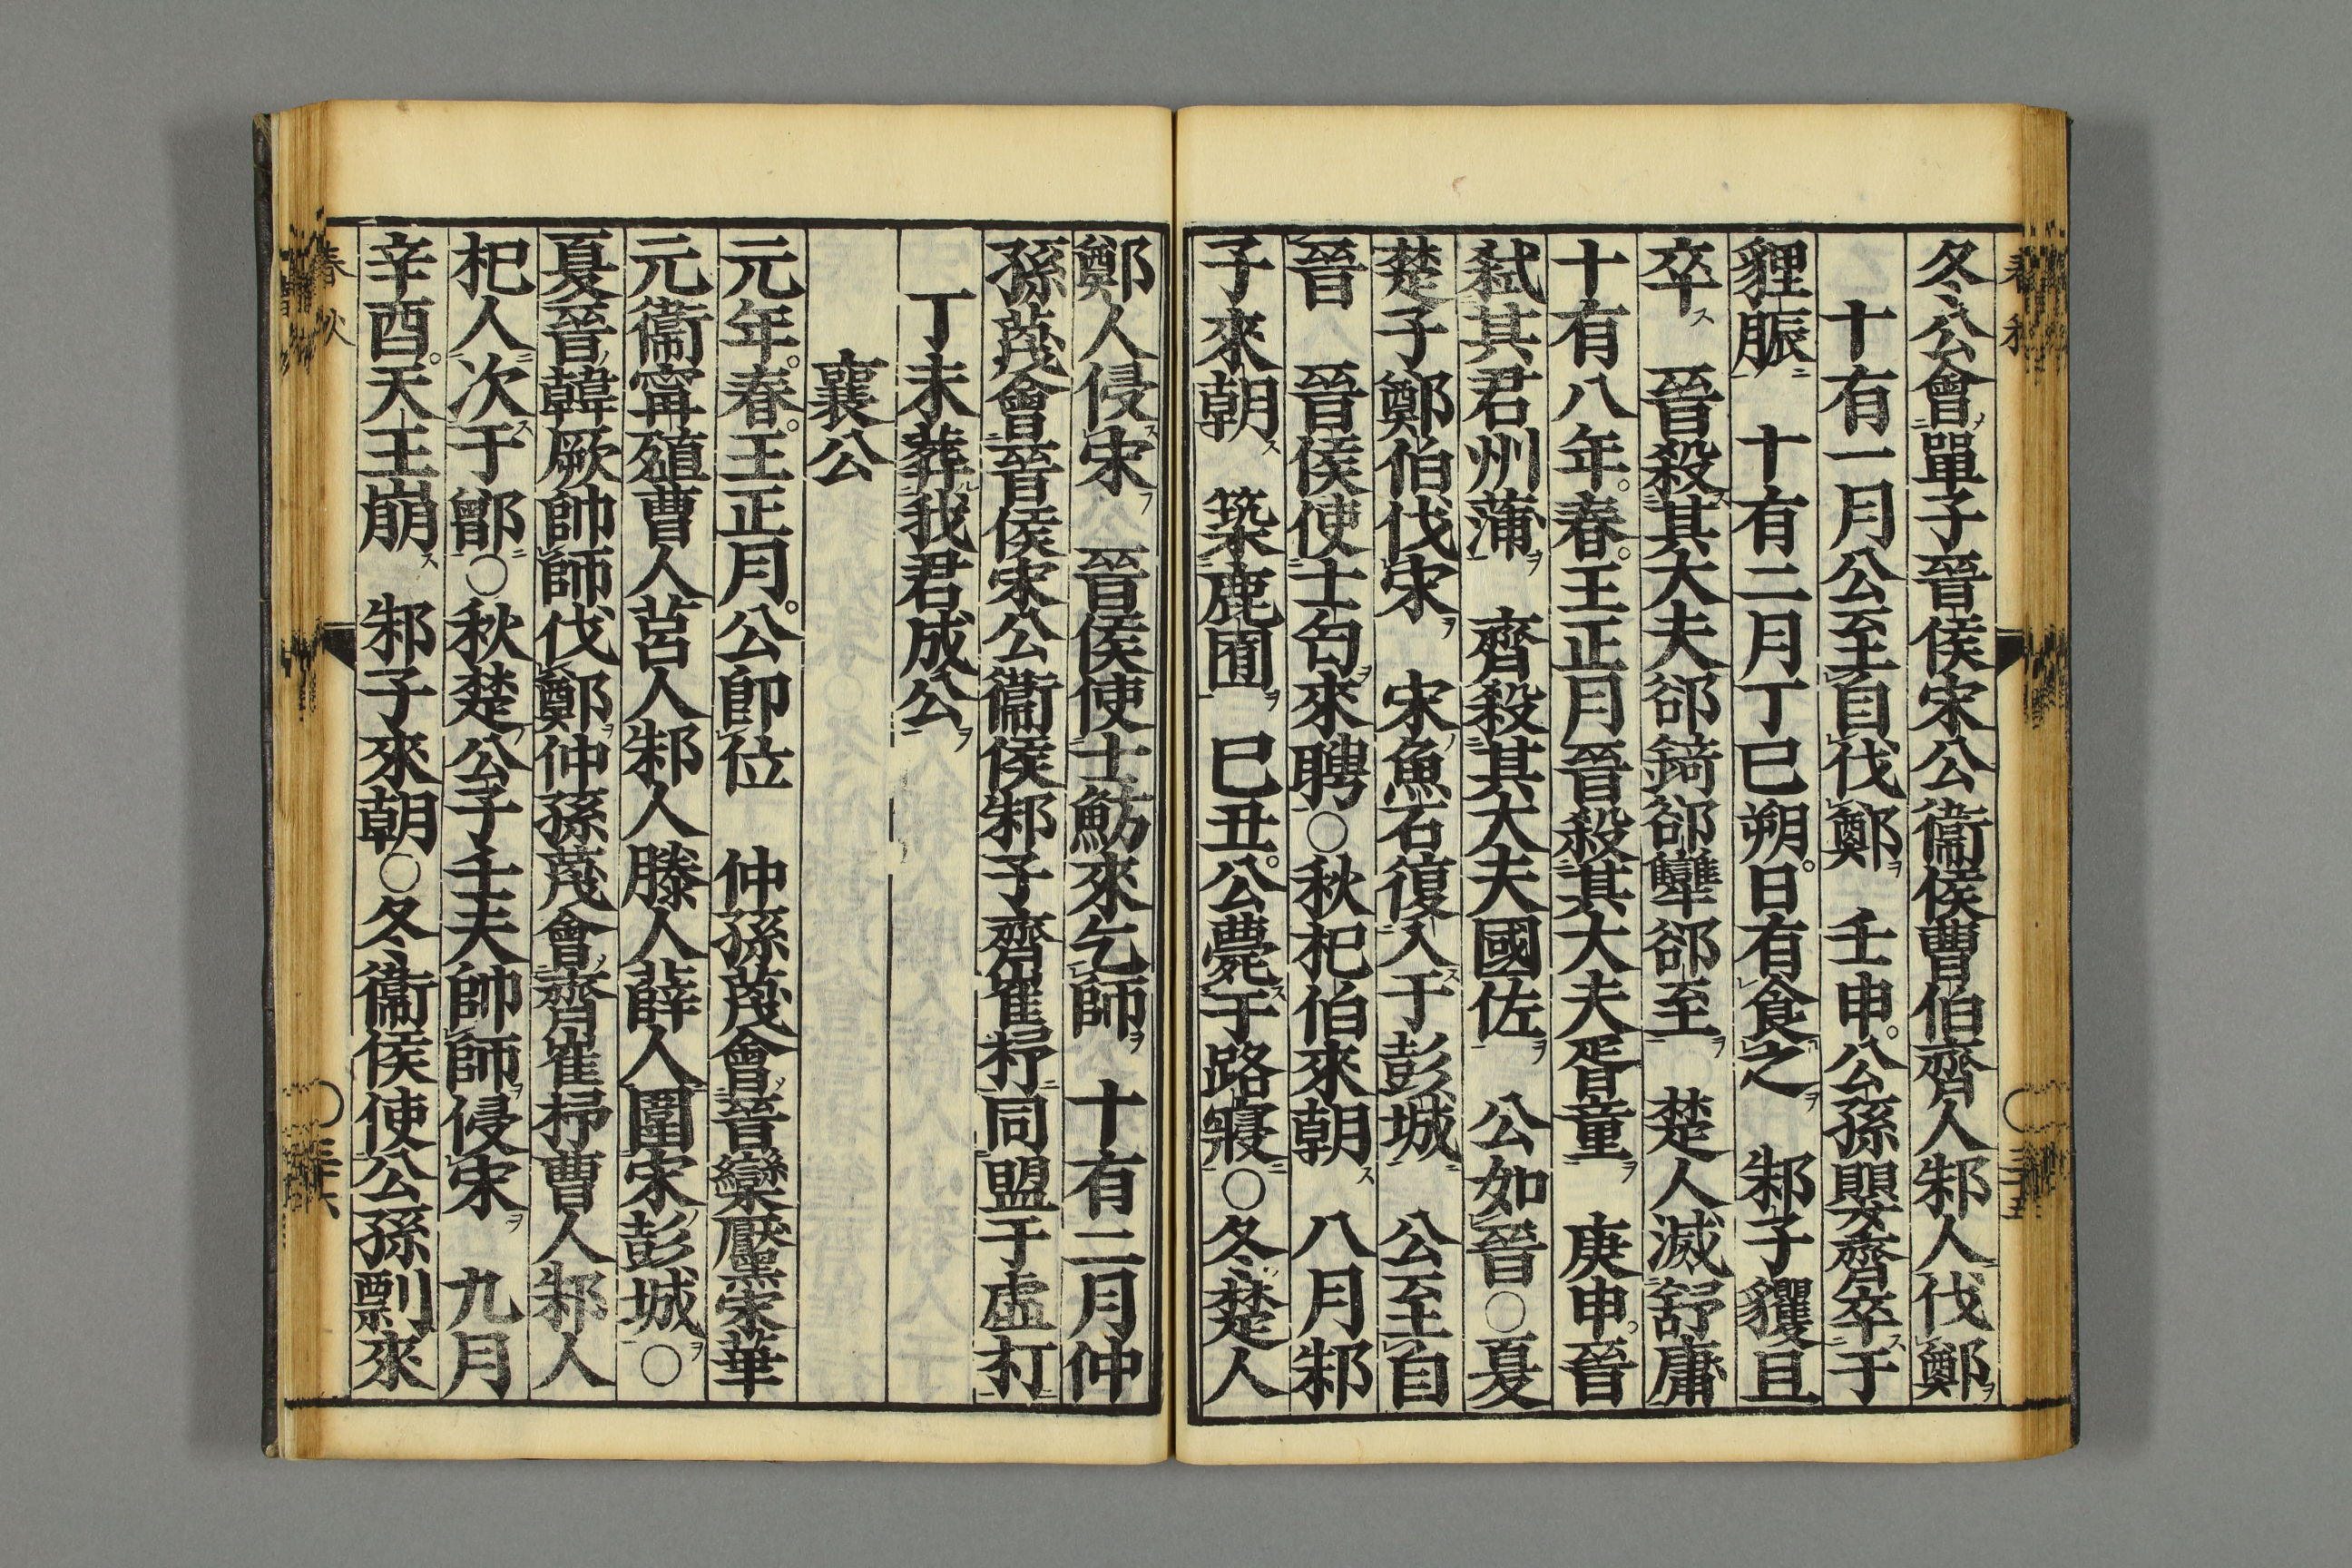 冬公會單子晉侯宋公衞侯曹伯齊人邾人伐鄭
十有一月公至自伐鄭 壬申公孫嬰齊卒于
貍脤 十有二月丁巳朔日有食之 邾子貜且
卒 晉殺其大夫郤錡郤犨郤至 楚人滅舒庸
十有八年春王正月晉殺其大夫胥童 庚申晉
弑其君州蒲 齊殺其大夫國佐 公如晉○夏
楚子鄭伯伐宋 宋魚石復入于彭城 公至自
晉 晉侯使士匄來聘○秋杞伯來朝 八月邾
子來朝 築鹿囿 己丑公薨于路寢○冬楚人
鄭人侵宋 晉侯使士魴來乞師 十有二月仲
孫蔑會晉侯宋公衞侯邾子齊崔杼同盟于虛朾
丁未葬我君成公
襄公
元年春王正月公卽位 仲孫蔑會晉欒黶宋華
元衞甯殖曹人莒人邾人滕人薛人圍宋彭城○
夏晉韓厥帥師伐鄭仲孫蔑會齊崔杼曹人邾人
杞人次于鄫○秋楚公子壬夫帥師侵宋 九月
辛酉天王崩 邾子來朝○冬衞侯使公孫剽來
春秋